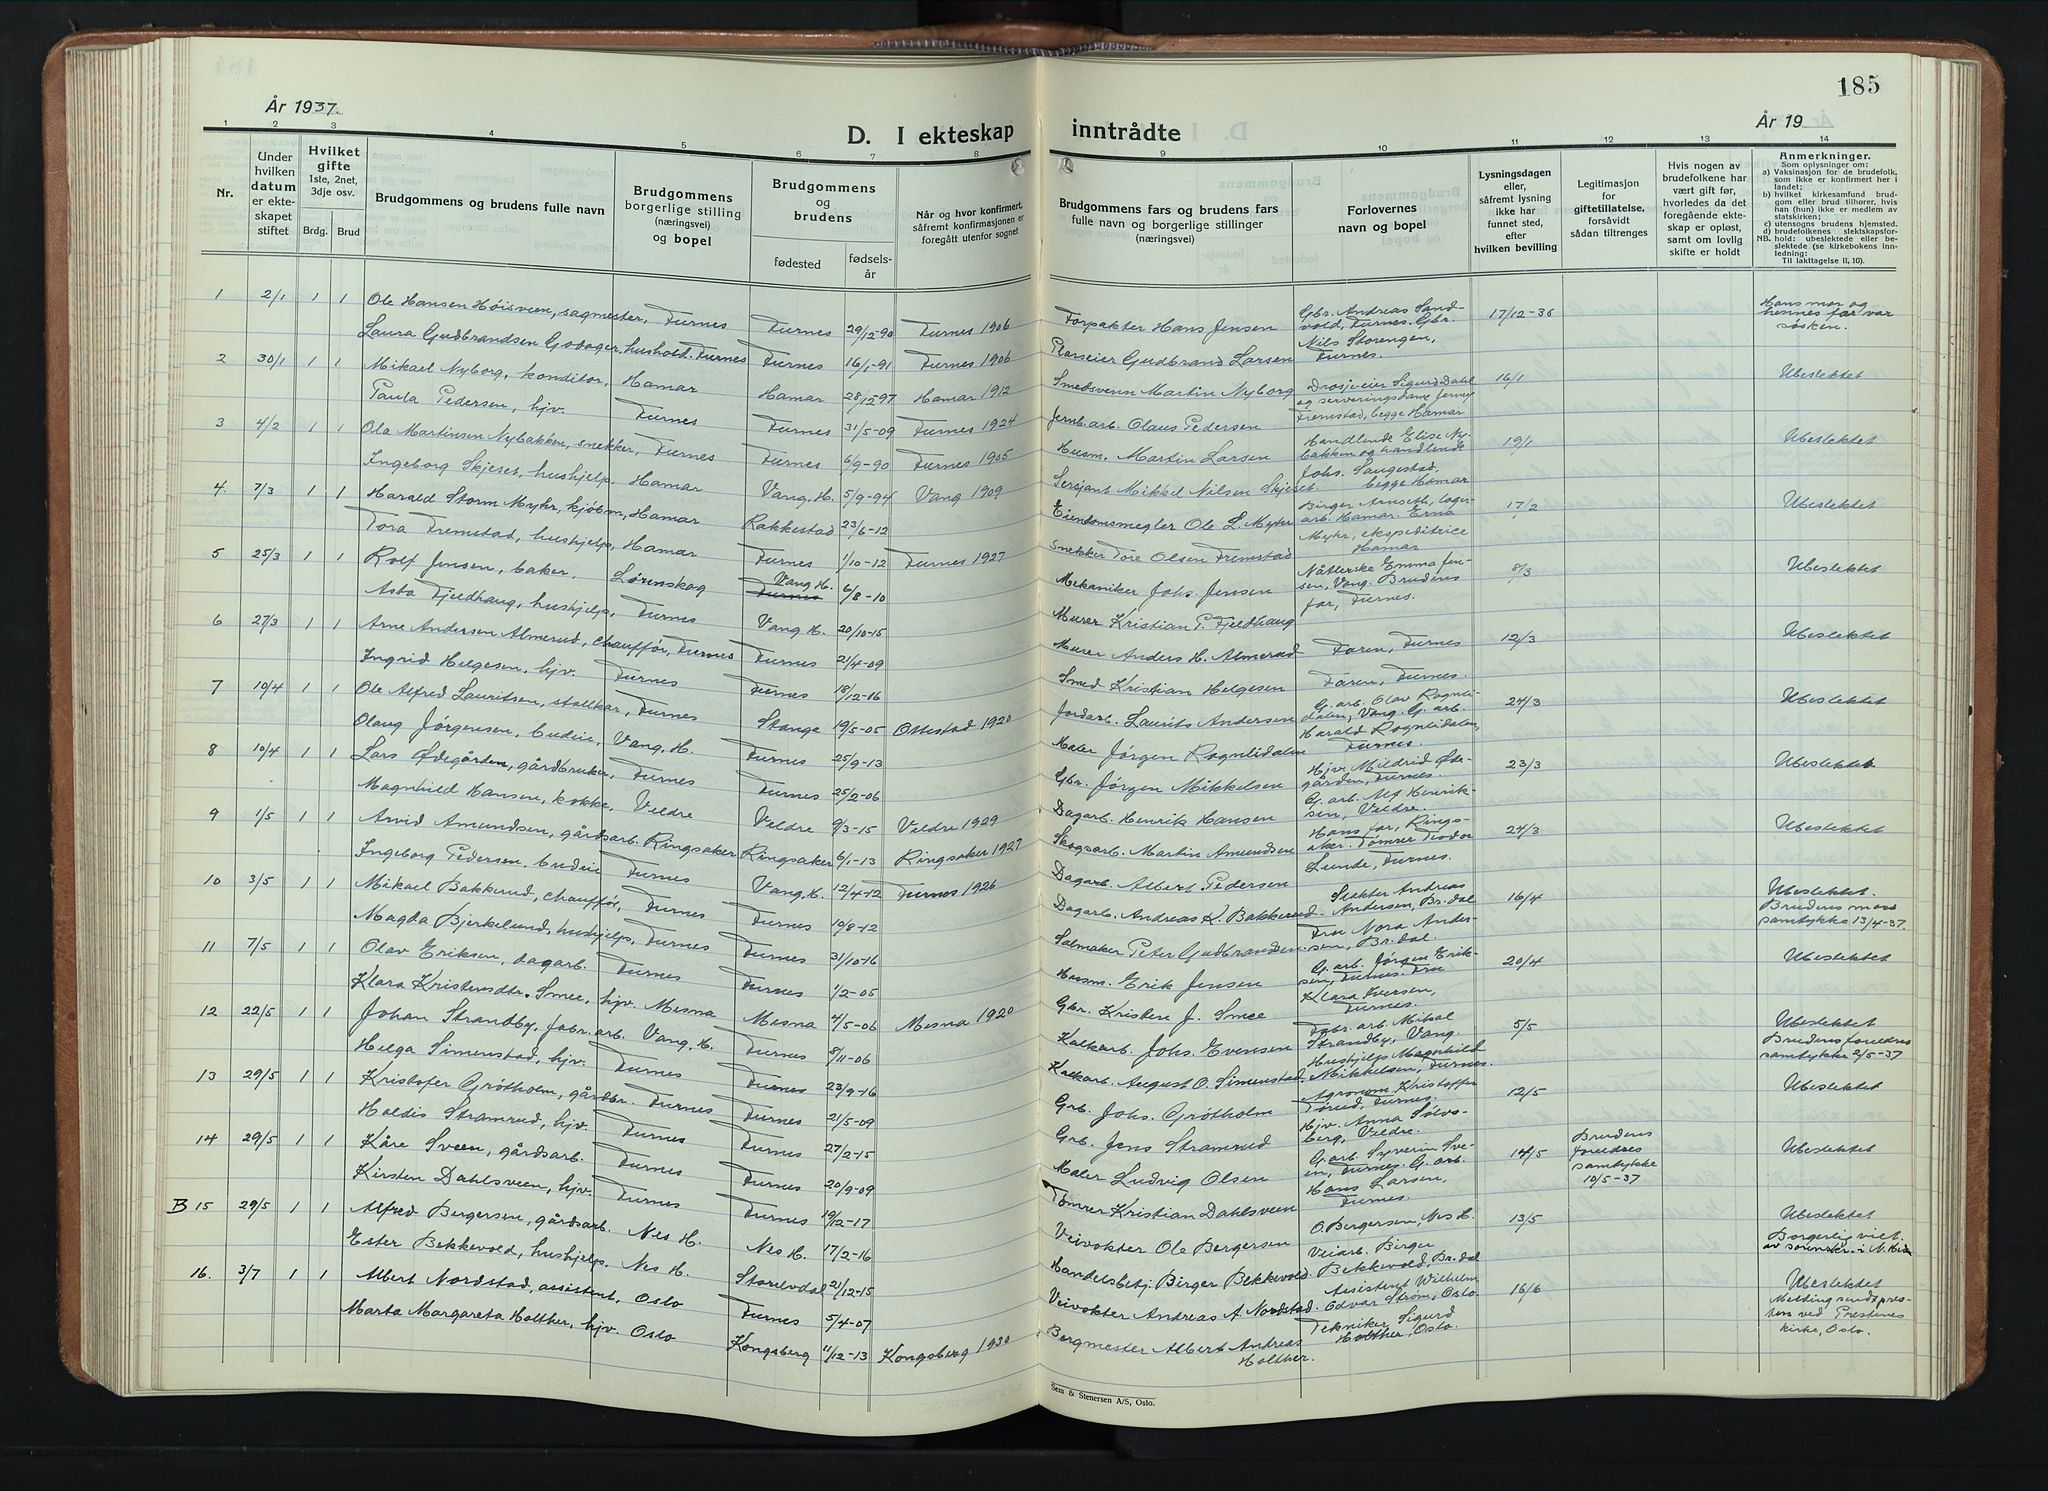 185
År 1937.
D. I ekteskap inntrådte
År 19
1 2 3 4 5 6 7 8 9 10 11 12 13 14
Nr.
Under hvilken datum er ekteskapet stiftet
Hvilket gifte 1ste, 2net, 3dje osv.
Brdg. Brud
Brudgommens og brudens fulle navn
Brudgommens borgerlige stilling (næringsvei) og bopel
Brudgommens og brudens
fødested
fødselsår
Når og hvor konfirmert, såfremt konfirmasjonen er foregått utenfor sognet
Brudgommens fars og brudens fars fulle navn og borgerlige stillinger (næringsvei)
Forlovernes navn og bopel
Lysningsdagen eller, såfremt lysning ikke har funnet sted, efter hvilken bevilling
Legitimasjon for giftetillatelse, forsåvidt sådan tiltrenges
Hvis nogen av brudefolkene har vært gift før, hvorledes da det foregående ekteskap er opløst, samt om lovlig skifte er holdt
Anmerkninger.
Som oplysninger om:
a) Vaksinasjon for de brudefolk, som ikke er konfirmert her i landet;
b) hvilket kirkesamfund brudgom eller brud tilhører, hvis han (hun) ikke er medlem av statskirken;
c) utensogns brudens hjemsted.
d) brudefolkenes slektskapsforhold: ubeslektede eller beslektede (se kirkebokens innledning:
NB. Til iakttagelse II, 10).
1 2/1 1 1 Ole Hansen Høisveen, sagmester, Furnes Furnes 29/12-90 Furnes 1906 Forpakter Hans Jensen Gbr. Andreas Sandvold, Furnes. Gbr. 17/12-36 Hans mor og hennes far var søsken.
Laura Gudbrandsen Godager, hushold. Furnes Furnes 16/1-91 Furnes 1906 Plasseier Gudbrand Larsen Nils Storengen, Furnes.
2 30/1 1 1 Mikael Nyborg, konditor, Hamar Hamar 28/12-97 Hamar 1912 Smedsvenn Martin Nyborg Drosjeeier Sigurd Dahl og serveringsdame Jenny 16/1 Ubeslektet
Paula Pedersen, hjv. Furnes Furnes 31/5-09 Furnes 1924 Jernb.arb. Olaus Pedersen Fremstad, begge Hamar
3 4/2 1 1 Ola Martinsen Nybakken, snekker, Furnes Furnes 6/9-90 Furnes 1905 Husm. Martin Larsen Handlende Elise Nybakken og handlende 19/1 Ubeslektet
Ingeborg Skjeset, hushjelp, Hamar Vang, H. 5/9-94 Vang 1909 Sersjant Mikkel Nilsen Skjeset. Johs. Saugestad, begge Hamar
4. 7/3 1 1 Harald Storm Myhr, kjøbm, Hamar Rakkestad 23/6-12 Eiendomsmegler Ole L. Myhr Birger Arnseth, lagerarb. Hamar. Erna 17/2 Ubeslektet
Tora Fremstad, hushjelp, Hamar Furnes 1/10-12 Furnes 1927 Snekker Tore Olsen Fremstad Myhr, ekspeditrice Hamar
5 25/3 1 1 Rolf Jensen, baker, Lørenskog Vang H. Furnes 6/8-10 Mekaniker Johs. Jensen Nåtlerske Emma Jensen, Vang. Brudens far, Furnes. 8/3 Ubeslektet
Asta Fjeldhaug, hushjelp, Furnes Vang H. 20/10-15 Murer Kristian P. Fjeldhaug
6 27/3 1 1 Arne Andersen Almerud, chauffør, Furnes Furnes 21/4-09 Murer Anders H. Almerud Faren, Furnes 12/3 Ubeslektet
Ingrid Helgesen, hjv. Furnes Furnes 18/12-16 Smed Kristian Helgesen Faren, Furnes.
7 10/4 1 1 Ole Alfred Lauritsen, stallkar, Furnes Stange 19/5-05 Ottestad 1920 Jordarb. Laurits Andersen G. arb. Olav Rognlidalen, Vang. G. arb. 24/3 Ubeslektet
Olaug Jørgensen, budeie, Vang, H. Furnes 25/9-13 Maler Jørgen Rognlidalen Harald Rognlidalen, Furnes.
8 10/4 1 1 Lars Ødegården, gårdbruker, Furnes Furnes 25/2-06 Gbr. Jørgen Mikkelsen Hjv. Mildrid Ødegården, Furnes. 23/3 Ubeslektet
Magnhild Hansen, kokke, Veldre Veldre 9/3-15 Veldre 1929 Dagarb. Henrik Hansen G. arb. Alf Henriksen, Veldre.
9 1/5 1 1 Arvid Amundsen, gårdsarb. Ringsaker Ringsaker 6/1-13 Ringsaker 1927 Skogsarb. Martin Amundsen Hans far, Ringsaker. Tømrer Teodor 24/3 Ubeslektet
Ingeborg Pedersen. budeie Furnes Vang, H. 12/4-12 Furnes 1926 Dagarb. Albert Pedersen Lunde, Furnes.
10 3/5 1 1 Mikael Bakkerud, chauffør, Furnes Furnes 10/8-12 Dagarb. Andreas K. Bakkerud Slakter Andreas Andersen, Br.dal 16/4 Ubeslektet. Brudens mors samtykke 13/4-37.
Magda Bjerkelund, hushjelp, Furnes Furnes 31/10-16 Salmaker Peter Gudbrandsen. Fru Nora Andersen, Br.dal.
11 7/5 1 1 Olav Eriksen, dagarb. Furnes Furnes 1/2-05 Husm. Erik Jensen G. arb. Jørgen Eriksen, Furnes. Fru 20/4 Ubeslektet
Klara Kristensdtr. Smee, hjv. Mesna Mesna 4/5-06 Mesna 1920 Gbr. Kristen J. Smee Klara Iversen, Furnes.
12 22/5 1 1 Johan Strandby, fabr. arb. Vang, H. Furnes 8/11-06 Kalkarb. Johs. Evensen Fabr. arb. Mikal Strandby, Vang. 5/5 Ubeslektet Brudens foreldres samtykke 2/5-37
Helga Simenstad, hjv. Furnes Furnes 23/9-16 Kalkarb. August O. Simenstad. Hushjelp Magnhild Mikkelsen, Furnes.
13 29/5 1 1 Kristofer Grøtholm, gårdbr. Furnes Furnes 21/5-09 Grb. Johs. Grøtholm Agronom Kristoffer Tørud, Furnes. 12/5 Ubeslektet
Haldis Stramrud, hjv. Furnes Furnes 27/2-15 Grb. Jens Stramrud Hjv. Anna Sølvsberg, Veldre.
14 29/5 1 1 Kåre Sveen, gårdsarb. Furnes Furnes 20/9-09 Maler Ludvig Olsen G. arb. Syverin Sveen, Furnes. G. arb. 14/5 Brudens foreldres samtykke 10/5-37 Ubeslektet
Kirsten Dahlsveen, hjv. Furnes Furnes 19/12-17 Tømrer Kristian Dahlsveen Hans Larsen, Furnes.
B 15 29/5 1 1 Alfred Bergersen, gårdsarb. Nes H. Nes H. 17/2-16 Veivokter Ole Bergersen O. Bergersen, Nes H. 13/5 Ubeslektet
Ester Bekkevold, hushjelp, Nes H. Storelvdal 21/12-15 Handelsbetj. Birger Bekkevold. Veiarb. Birger Bekkevold, Br.dal Borgerlig viet av sorenskr. i N. Hedm
16. 3/7 1 1 Albert Nordstad, assistent, Oslo Furnes 5/4-07 Veivokter Andreas A. Nordstad. Assistent Wilhelm Edvar Strøm, Oslo 16/6 Ubeslektet Melding sendt presten ved Prestenes kirke, Oslo.
Marta Margareta Holther, hjv. Oslo Kongsberg 11/12-13 Kongsberg 1930 Bergmester Albert Andreas Holther. Tekniker Sigurd Holther, Oslo.
Sem & Stenersen A/S, Oslo.